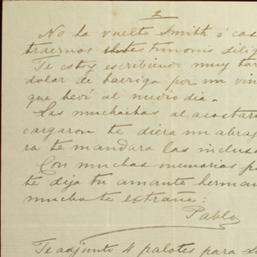 2
No ha vuelto Smith á cas
traernos
Te estoy escribiendo muy tar
dolor de barriga por un vin
que bebí al medio dia.
Las muchachas al acostars
cargaron te diera un abraz
ra te mandara las inclusa
Con muchas memorias p
te deja tu amante herman
mucho te extraña:
Pablo
Te adjunto 4 palotes para s